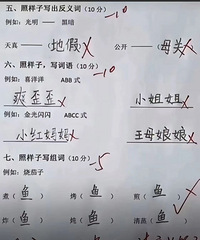 五、照样子写出反义词(10 分) -10
例如:光明 —— 黑暗
天真 —— (地假) 公开 —— (母关)
六、照样子,写词语(10 分) -10
例如:喜洋洋 ABB 式
爽歪歪 小姐姐
例如:金光闪闪 ABCC 式
小红妈妈 王母娘娘
七、照样子写组词(10 分) -5
例如:烧茄子
煮(鱼) 烤(鱼) 煎(鱼)
炸(鱼) 炖(鱼) 清蒸(鱼)